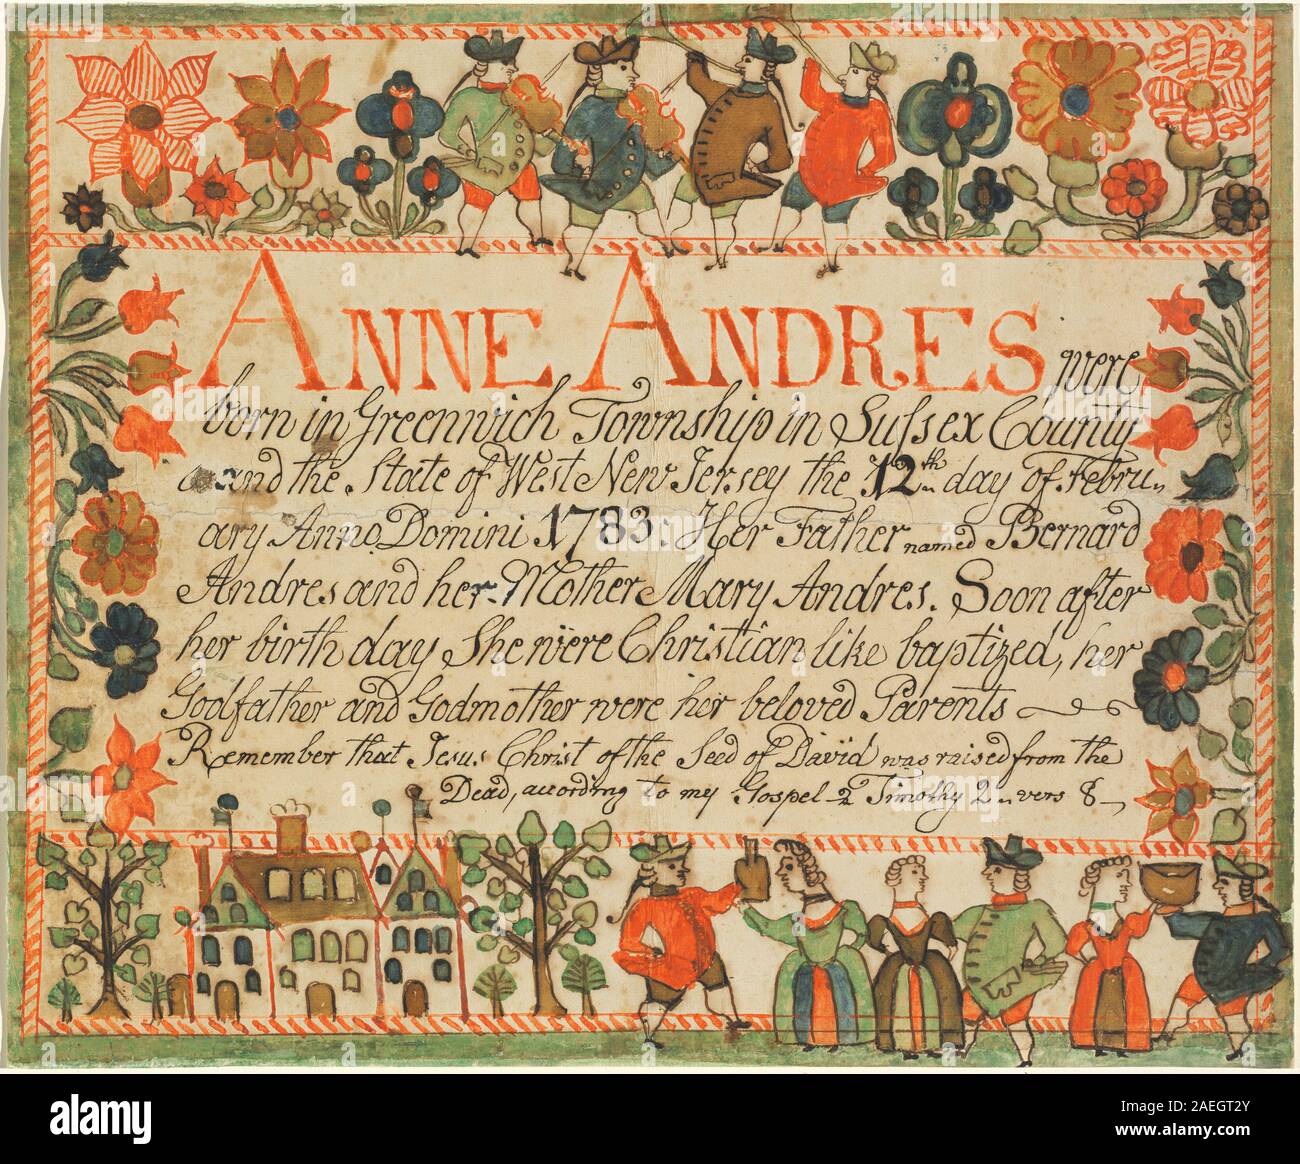 ANNE ANDRES were
born in Greenwich Township in Sussex County
and the State of West New Jersey the 12th day of Febru„
ary Anno Domini 1783: Her Father named Bernard
Andres and her Mother Mary Andres. Soon after
her birth day She were Christian like baptized, her
Godfather and Godmother were her beloved Parents
Remember that Jesus Christ of the Seed of David was raised from the
Dead, according to my Gospel 2 Timothy 2 vers 8
alamy
Image ID: 2AEGT2Y
www.alamy.com